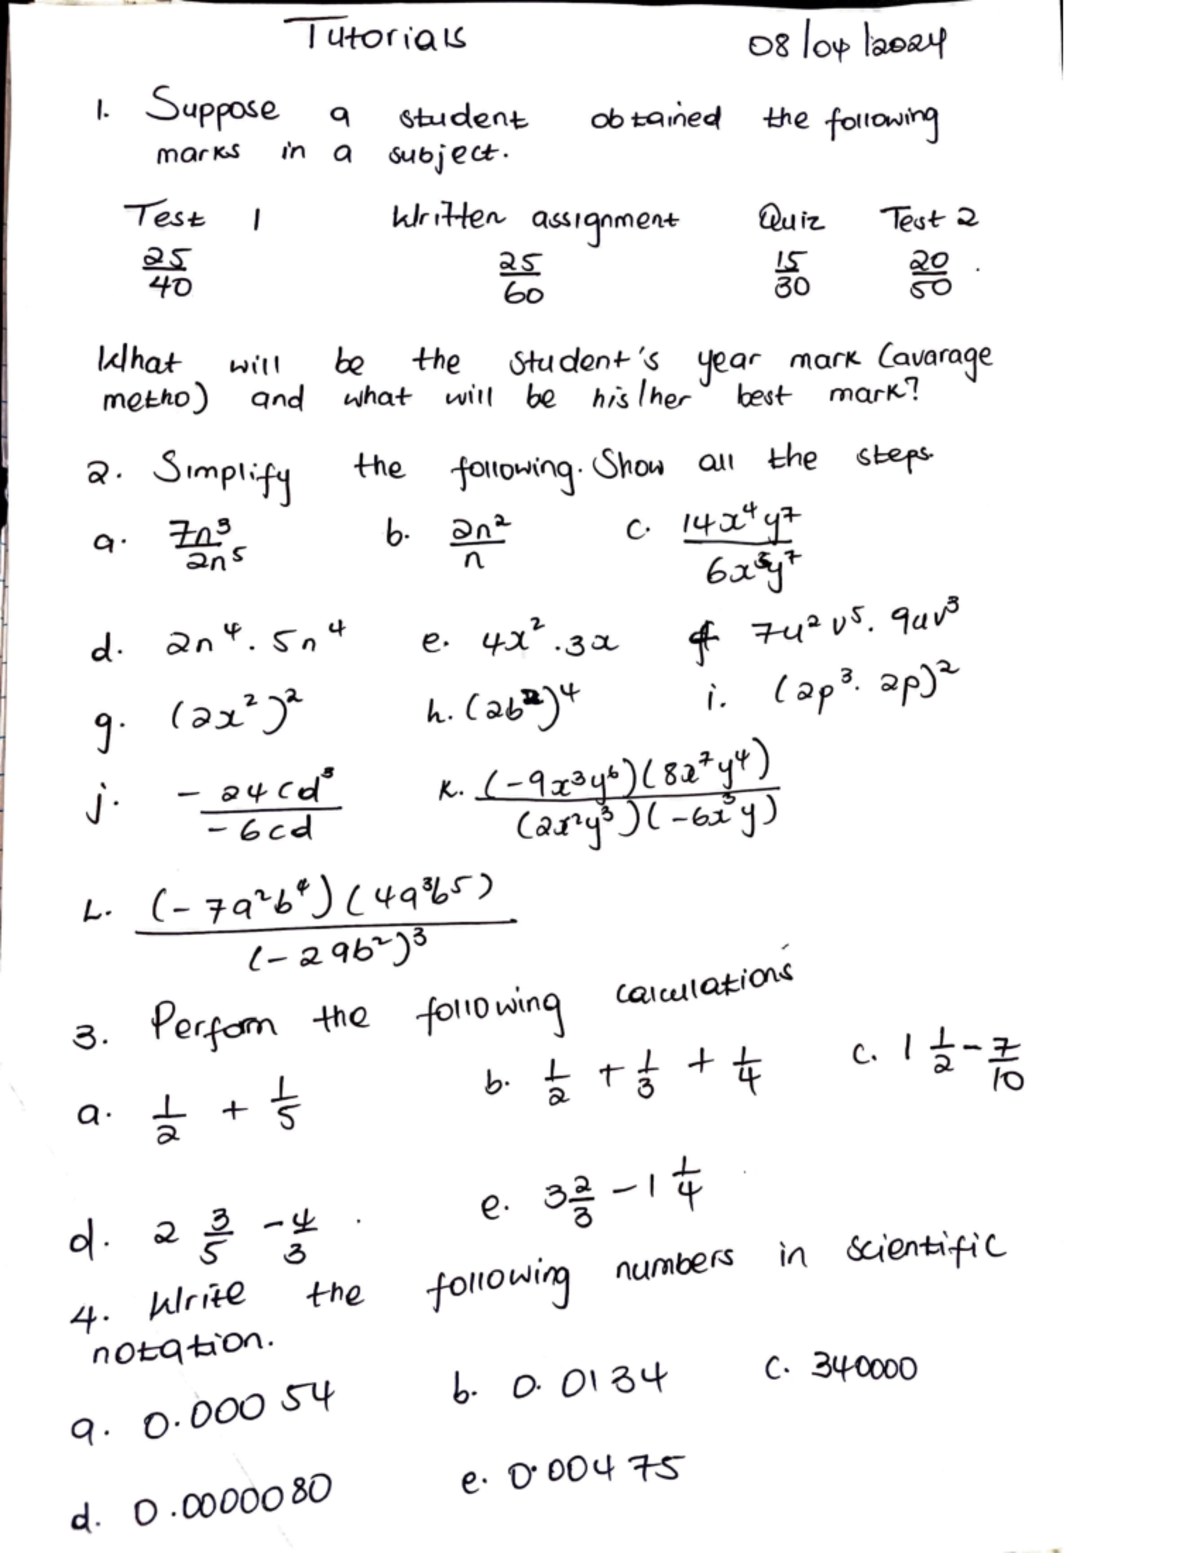 Tutorials 08/04/2024
1. Suppose a student obtained the following
marks in a subject.
Test 1 Written assignment Quiz Test 2
25/40 25/60 15/30 20/50.
What will be the student's year mark (avarage
metho) and what will be his/her best mark?
2. Simplify the following. Show all the steps.
a. 7n³/2n⁵ b. 2n²/n c. 14x⁴y⁷/6x⁵y⁷
d. 2n⁴. 5n⁴ e. 4x².3x f 7u²v⁵. 9uv³
g. (2x²)² h. (2b²)⁴ i. (2p³. 2p)²
j. -24cd³/-6cd k. (-9x³y⁶)(8x⁷y⁴)/(2x²y³)(-6x³y)
L. (-7a²b⁴)(4a³b⁵)/(-2ab²)³
3. Perfom the following calculations
a. 1/2 + 1/5 b. 1/2 + 1/3 + 1/4 c. 1 1/2 - 7/10
d. 2 3/5 - 4/3. e. 3 2/3 - 1 1/4
4. Write the following numbers in scientific
notation.
a. 0.00054 b. 0.0134 c. 340000
d. 0.0000080 e. 0.00475